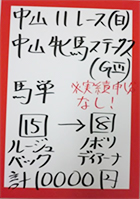 中山11レース(日)
中山牝馬ステークス
(GⅢ)
馬単
※実績申込
なし!
15→8
ルージュ
バック
ノボリ
ディアーナ
計10000円